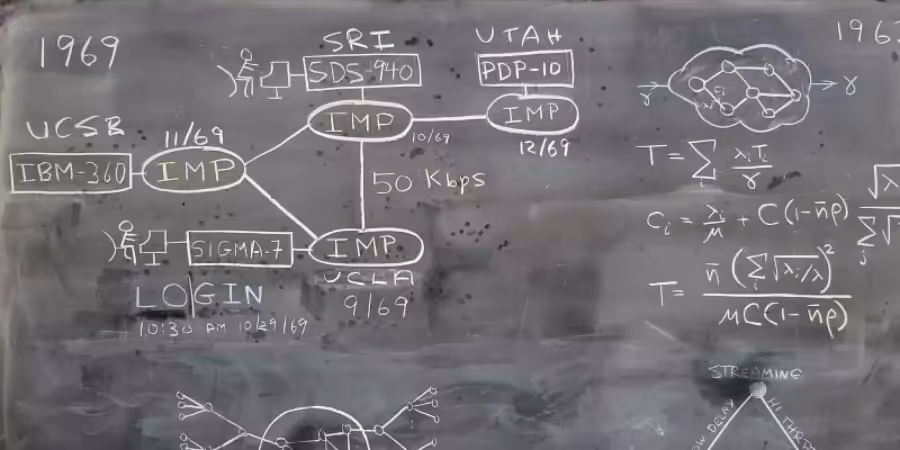 1969
SRI
UTAH
SDS-940
PDP-10
IMP
10/69
IMP
12/69
UCSB
11/69
IBM-360
IMP
50 Kbps
SIGMA-7
IMP
UCLA
9/69
LOGIN
10:30 PM 10/29/69
196
γ
γ
T = Σ λᵢTᵢ / γ
Cᵢ = λᵢ/μ + C(1-n̄ρ) √λ / Σ √
j
T = n̄ (Σ √λᵢ/λ)² / μC(1-n̄ρ)
STREAMING
OW DELAY
HI THR